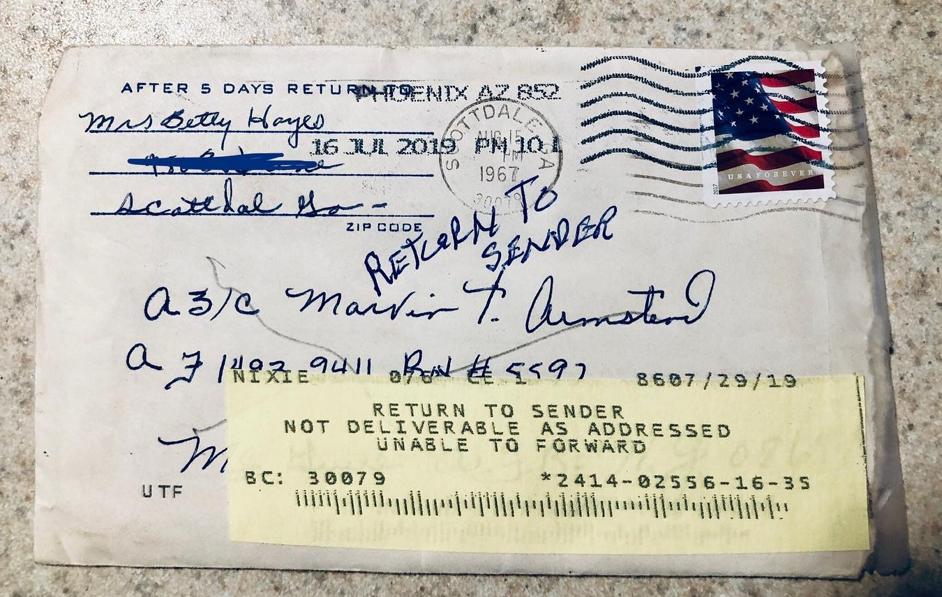 AFTER 5 DAYS RETURN TO
PHOENIX AZ 852
Mrs Betty Hayes
16 JUL 2019 PM 10 L
SCOTTDALE GA
AUG 15
PM
1967
30079
Scottdal Ga -
ZIP CODE
USA FOREVER
2017
RETURN TO
SENDER
A 3/C Marvin T. Armstead
A F 1492 9411 Box # 5597
NIXIE 076 CE 1 8607/29/19
RETURN TO SENDER
NOT DELIVERABLE AS ADDRESSED
UNABLE TO FORWARD
UTF
BC: 30079 *2414-02556-16-35